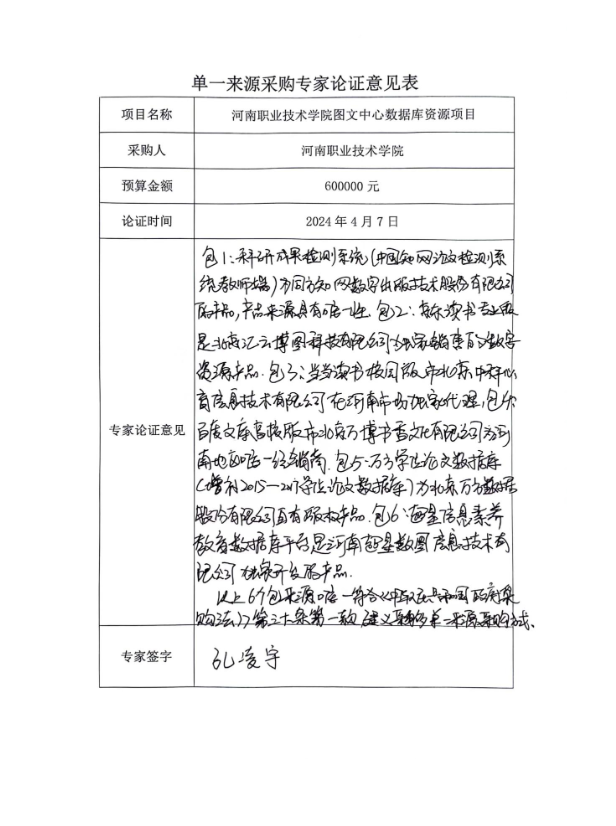 单一来源采购专家论证意见表
项目名称 河南职业技术学院图文中心数据库资源项目
采购人 河南职业技术学院
预算金额 600000 元
论证时间 2024 年 4 月 7 日
专家论证意见
包1:科研成果检测系统(中国知网论文检测系
统教师端)为同方知网数字出版技术股份有限公司
的产品,产品来源具有唯一性。包2: 读书专业版
是北京汇云博图科技有限公司独家销售的 数字
资源产品。包3:当当读书校园版,由北京中科
育信息技术有限公司在河南市场独家代理,包4:
百度文库高校版由北京万博书香文化有限公司为河
南地区唯一经销商。包5:万方学位论文数据库
(增补2015—2017学位论文数据库)为北京万方数据
股份有限公司自有版权产品。包6: 星信息素养
教育数据库平台是河南 星数图信息技术有
限公司独家开发的产品。
以上6个包来源唯一符合《中华人民共和国政府采
购法》第三十一条第一款,建议采购单一来源采购方式。
专家签字 孔凌宇